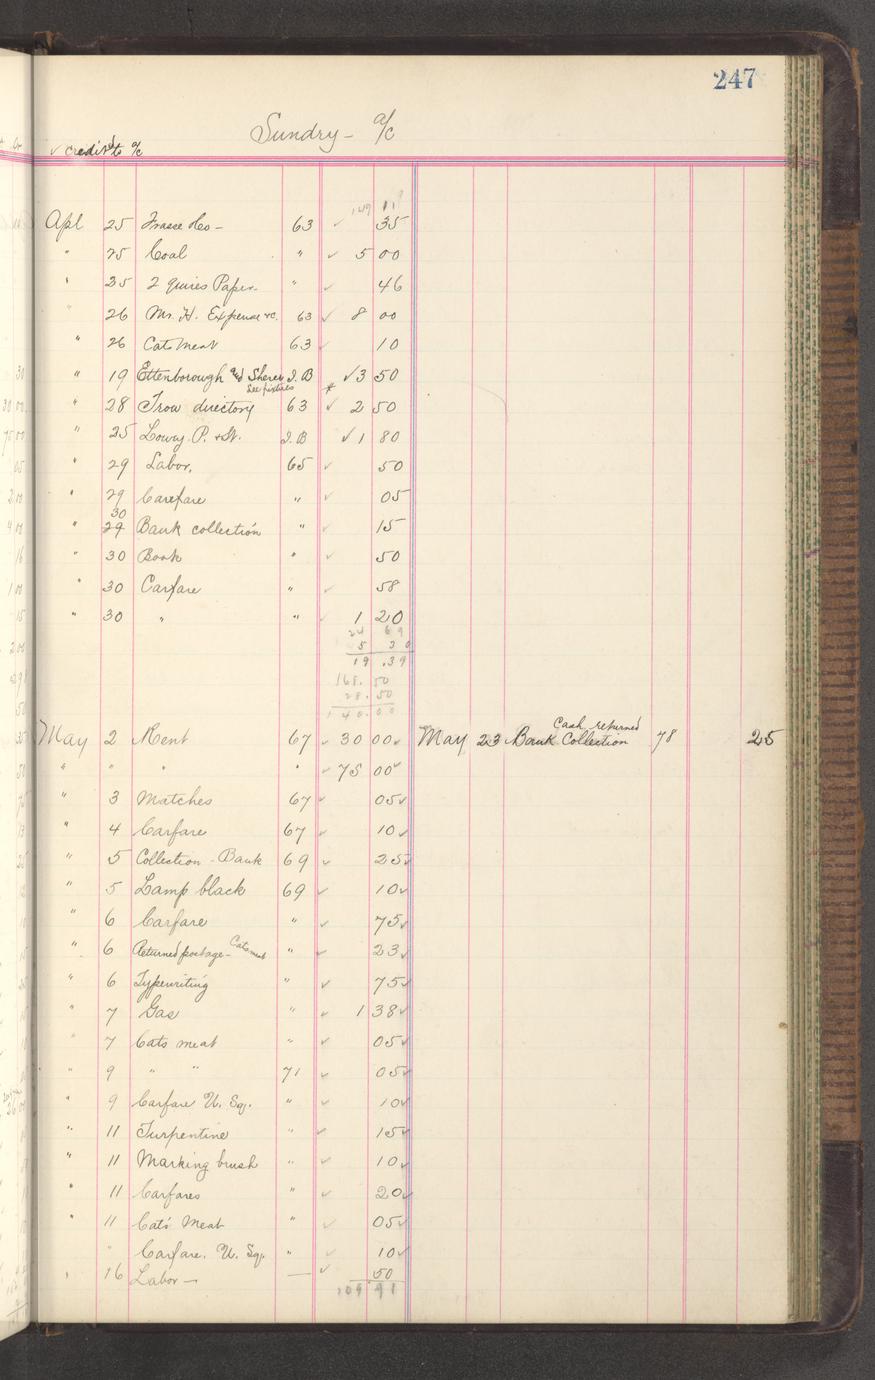 247
Sundry - a/c
✓ credit to a/c
149 11
Apl 25 63 ✓ 35
" 25 Coal " ✓ 5 00
" 25 2 quires Paper " ✓ 46
" 26 Mr. H. Expense &c. 63 ✓ 8 00
" 26 Cats Meat 63 ✓ 10
" 19 Ettenborough and Sherer I. B ✓ 3 50
See fixtures *
" 28 Trow directory 63 ✓ 2 50
" 25 Lowey P. & St. I. B ✓ 1 80
" 29 Labor. 65 ✓ 50
" 29 Carefare " ✓ 05
30
" 29 Bank collection " ✓ 15
" 30 Book " ✓ 50
" 30 Carfare " ✓ 58
" 30 " " ✓ 1 20
24 69
5 30
19.39
168.50
28.50
140.00
May 2 Rent 67 ✓ 30 00 ✓ May 23 Bank Collection Cash returned 78 25
" " " " ✓ 75 00 ✓
" 3 Matches 67 ✓ 05 ✓
" 4 Carfare 67 ✓ 10 ✓
" 5 Collection - Bank 69 ✓ 25 ✓
" 5 Lamp black 69 ✓ 10 ✓
" 6 Carfare " ✓ 75 ✓
" 6 Returned postage - Cats meat " ✓ 23 ✓
" 6 Typewriting " ✓ 75 ✓
" 7 Gas " ✓ 1 38 ✓
" 7 Cats meat " ✓ 05 ✓
" 9 " " 71 ✓ 05 ✓
" 9 Carfare U. Sq. " ✓ 10 ✓
" 11 Turpentine " ✓ 15 ✓
" 11 Marking brush " ✓ 10 ✓
" 11 Carfares " ✓ 20 ✓
" 11 Cats Meat " ✓ 05 ✓
" Carfare. U. Sq. " ✓ 10 ✓
" 16 Labor — — ✓ 50
109 91